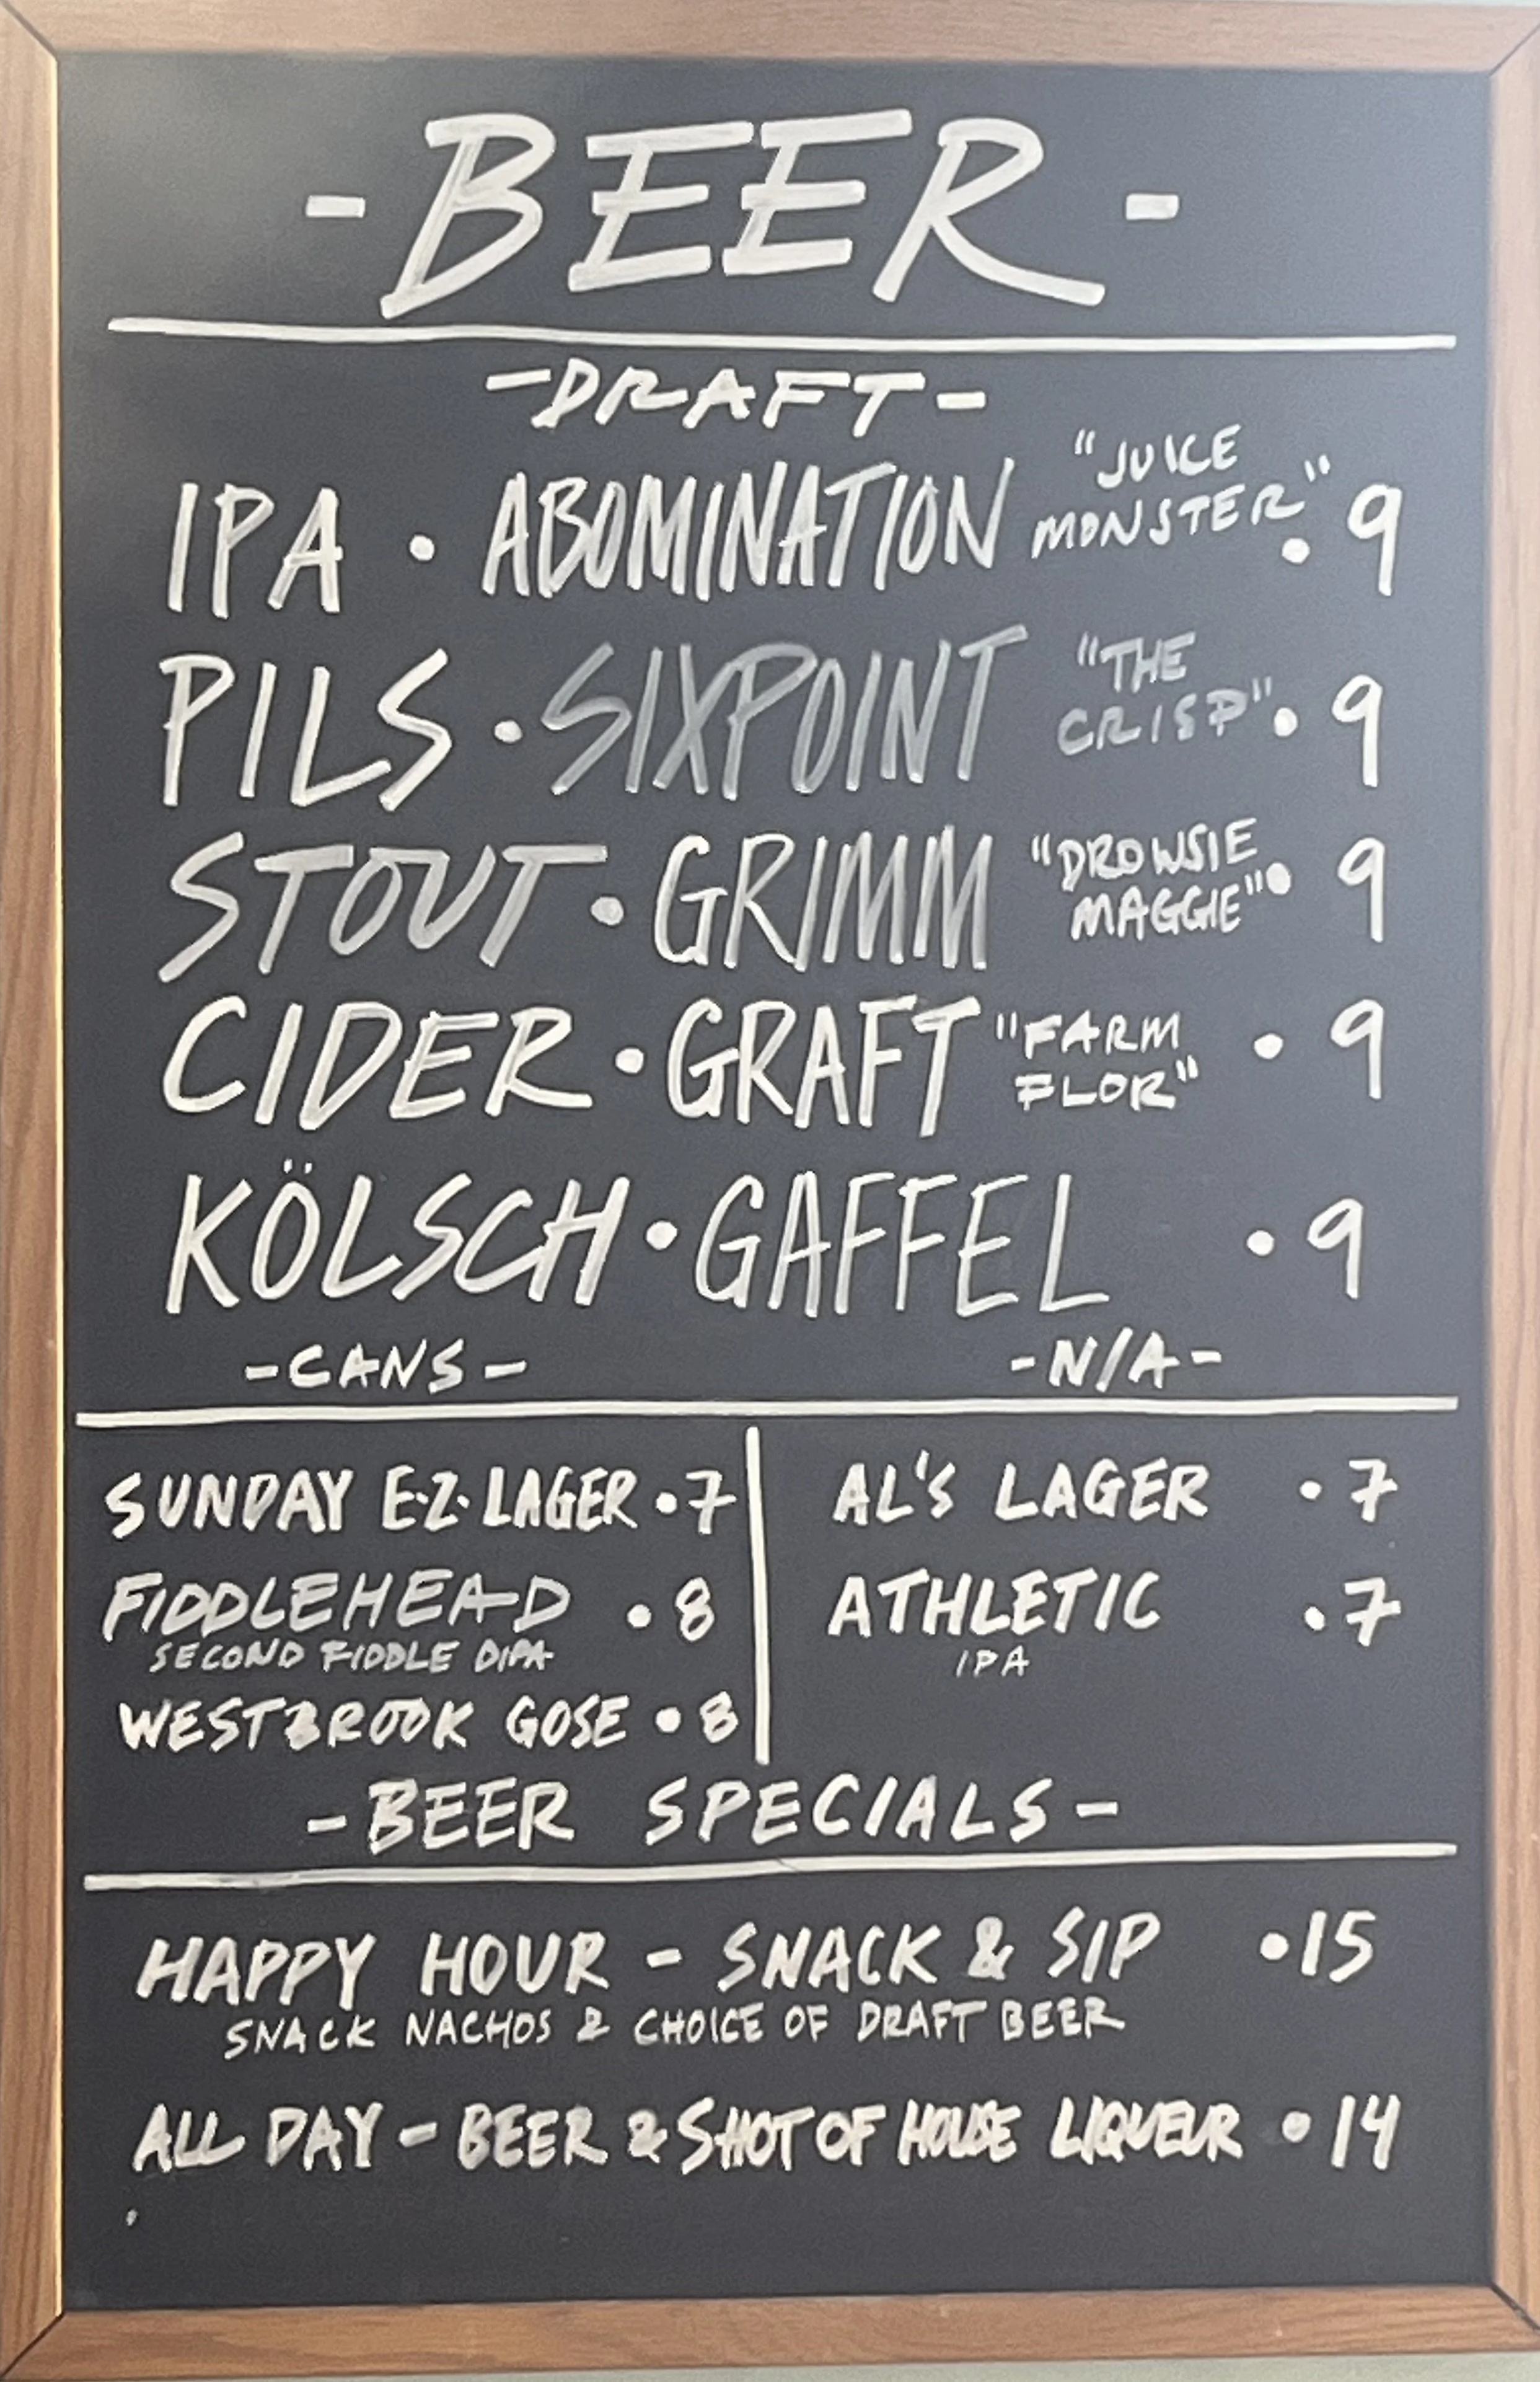 -BEER-
-DRAFT-
IPA • ABOMINATION "JUICE MONSTER" • 9
PILS • SIXPOINT "THE CRISP" • 9
STOUT • GRIMM "DROWSIE MAGGIE" • 9
CIDER • GRAFT "FARM FLOR" • 9
KÖLSCH • GAFFEL • 9
-CANS-
SUNDAY E.Z. LAGER • 7
FIDDLEHEAD • 8
SECOND FIDDLE DIPA
WESTBROOK GOSE • 8
-N/A-
AL'S LAGER • 7
ATHLETIC • 7
IPA
-BEER SPECIALS-
HAPPY HOUR - SNACK & SIP • 15
SNACK NACHOS & CHOICE OF DRAFT BEER
ALL DAY - BEER & SHOT OF HOUSE LIQUEUR • 14